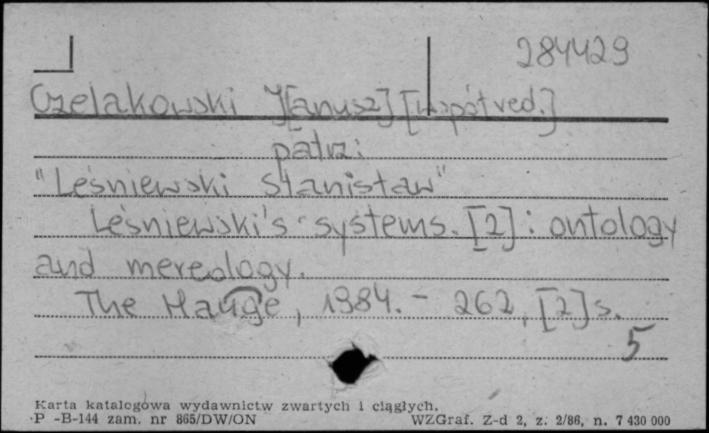 284429
Czelakowski J[anusz] [współred.]
patrz:
"Leśniewski Stanisław"
Leśniewski's systems. [2] : ontology
and mereology.
The Hauge, 1984. - 262, [2] s.
5
Karta katalogowa wydawnictw zwartych i ciągłych.
P -B-144 zam. nr 865/DW/ON WZGraf. Z-d 2, z. 2/86, n. 7 430 000